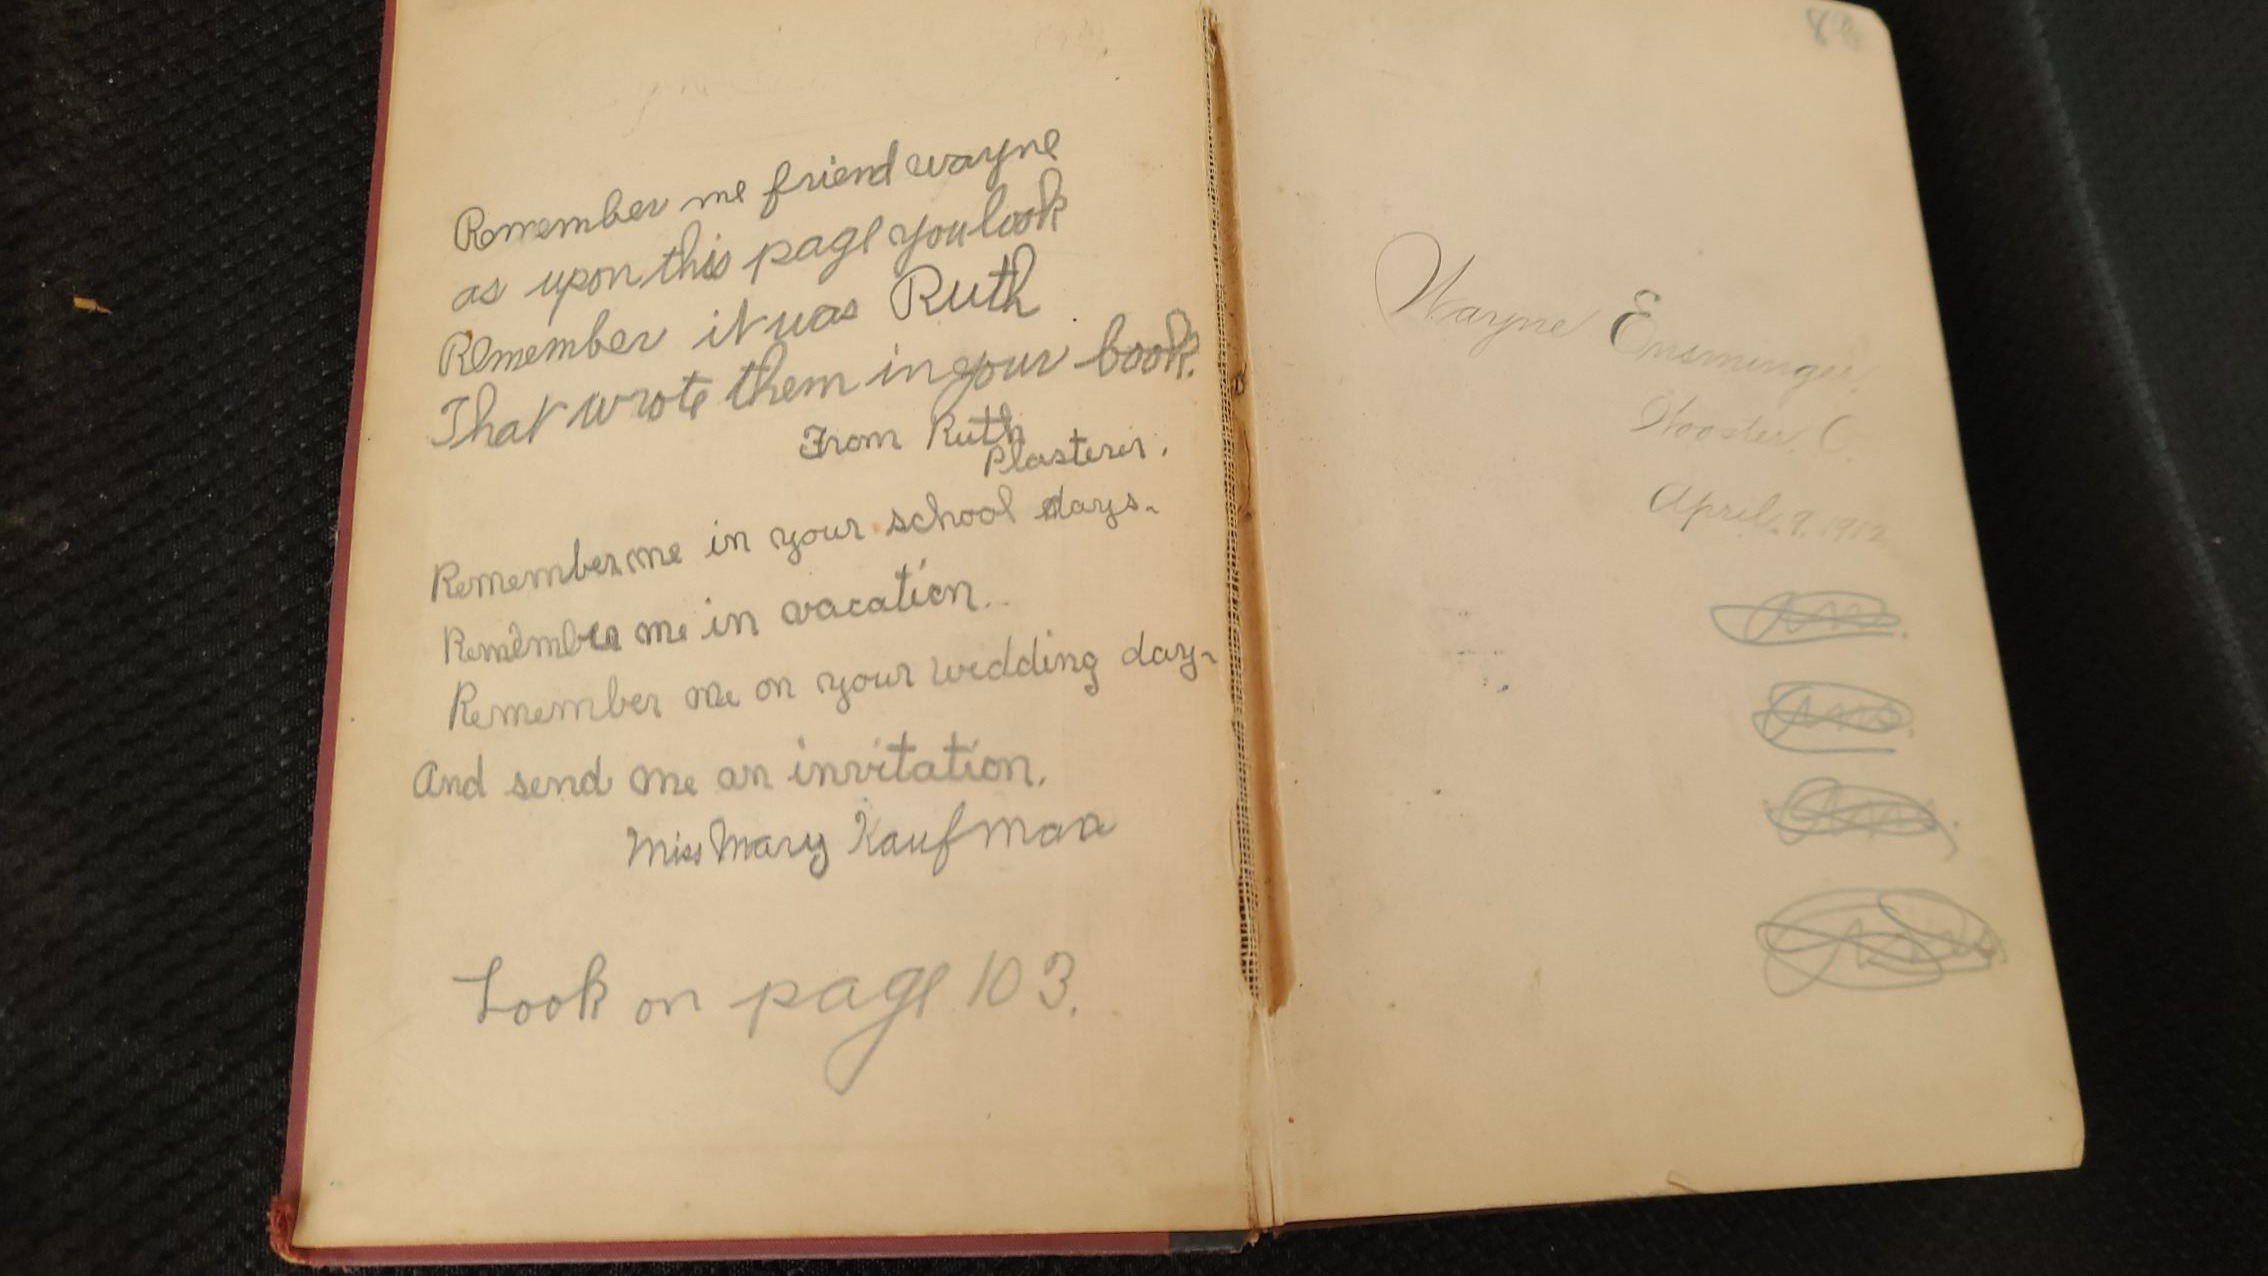 Remember me friend wayne
as upon this page you look
Remember it was Ruth
That wrote them in your book.
From Ruth
Plasterer.
Remember me in your school days.
Remember me in vacation.
Remember me on your wedding day.
And send me an invitation.
Miss Mary Kaufman
Look on page 103.
Wayne Ensminger,
Wooster, O.
April. 9. 1912